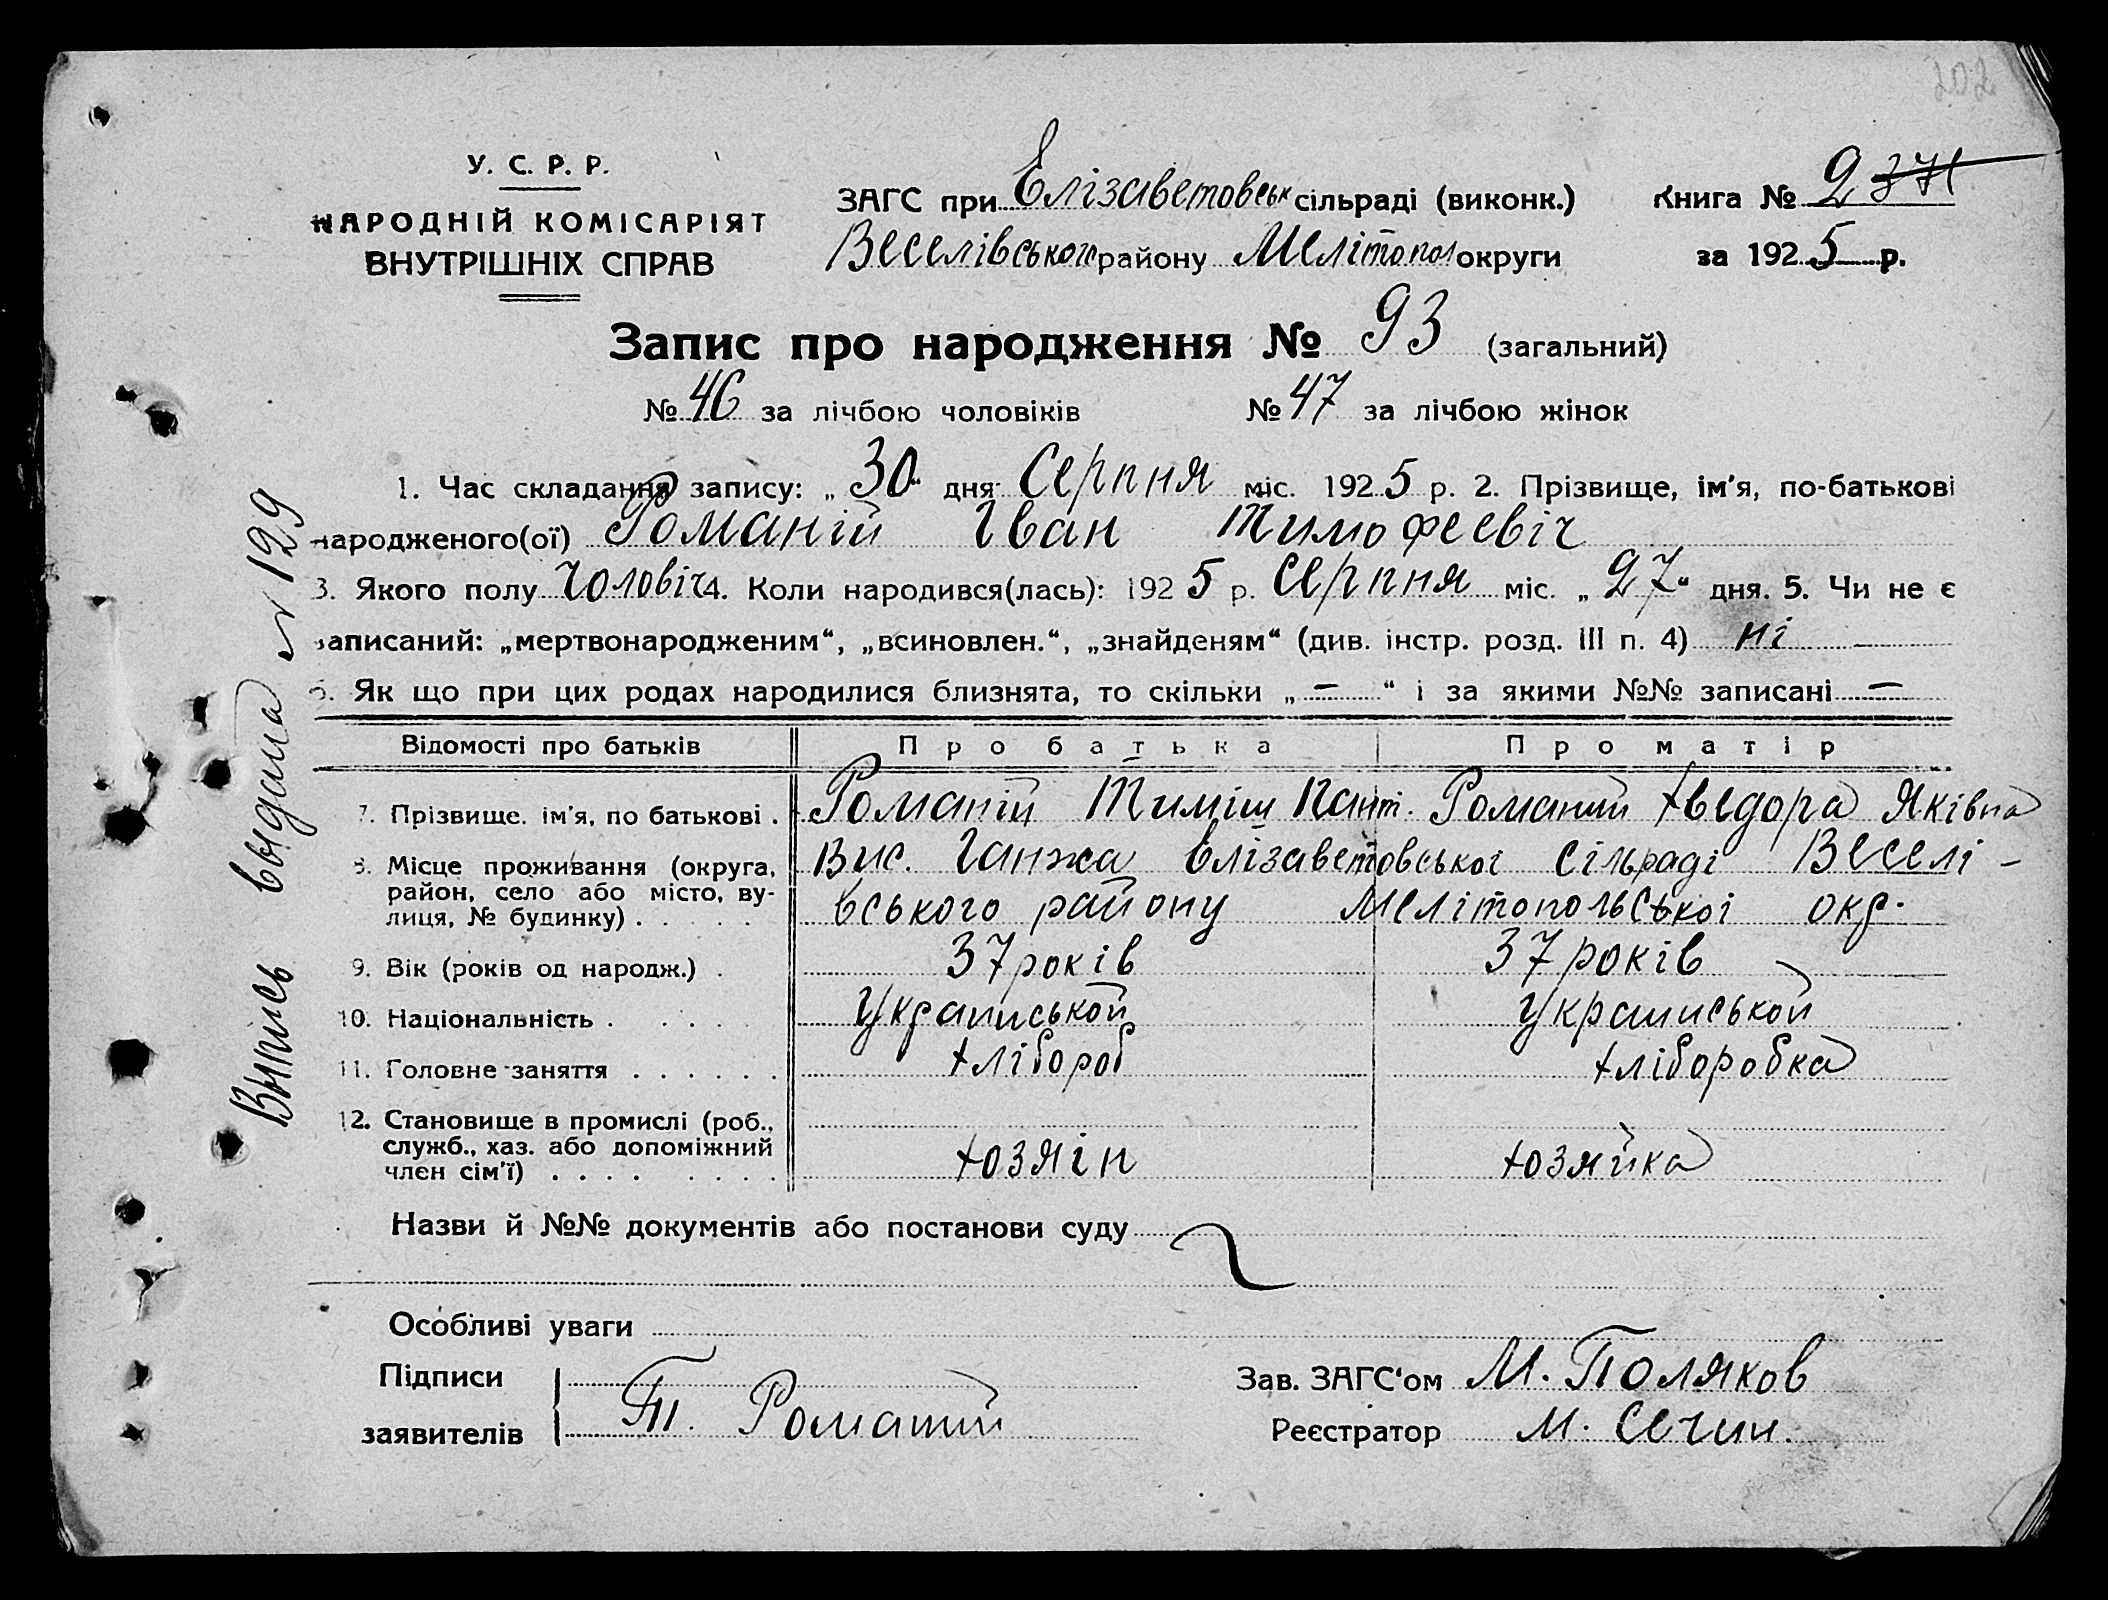 202
У. С. Р. Р.
НАРОДНІЙ КОМІСАРІЯТ
ВНУТРІШНІХ СПРАВ
ЗАГС при Елізаветовськ сільраді (виконк.)
Веселівського району Мелітопол округи
Книга № 2
за 1925 р.
Запис про народження № 93 (загальний)
№ 46 за лічбою чоловіків № 47 за лічбою жінок
1. Час складання запису: „30“ дня Серпня міс. 1925 р. 2. Прізвище, ім'я, по-батькові
народженого(ої) Романій Іван Тимофеевіч
3. Якого полу Чоловіч 4. Коли народився(лась): 1925 р. Серпня міс. „27“ дня. 5. Чи не є
записаний: „мертвонародженим“, „всиновлен.“, „знайденям“ (див. інстр. розд. III п. 4) ні —
6. Як що при цих родах народилися близнята, то скільки „—“ і за якими №№ записані —
Відомості про батьків Про батька Про матір
7. Прізвище, ім'я, по батькові . Романій Тиміш Пант. Романій Хведора Яківна
8. Місце проживання (округа, Вис. Ганжа Елізаветовської Сільраді Веселі-
район, село або місто, ву-
лиця, № будинку) . . . . . вського району Мелітопольської окр.
9. Вік (років од народж.) . 37 років 37 років
10. Національність . . . . . Украинськой Украинськой
11. Головне заняття . . . . . . Хлібороб Хліборобка
12. Становище в промислі (роб.,
служб., хаз. або допоміжний
член сім'ї) . . . . . . . . Хозяін Хозяйка
Назви й №№ документів або постанови суду
Особливі уваги
Підписи
заявителів Т. Романій
Зав. ЗАГС'ом М. Поляков
Реєстратор М. Сечин.
Выпись выдана № 129